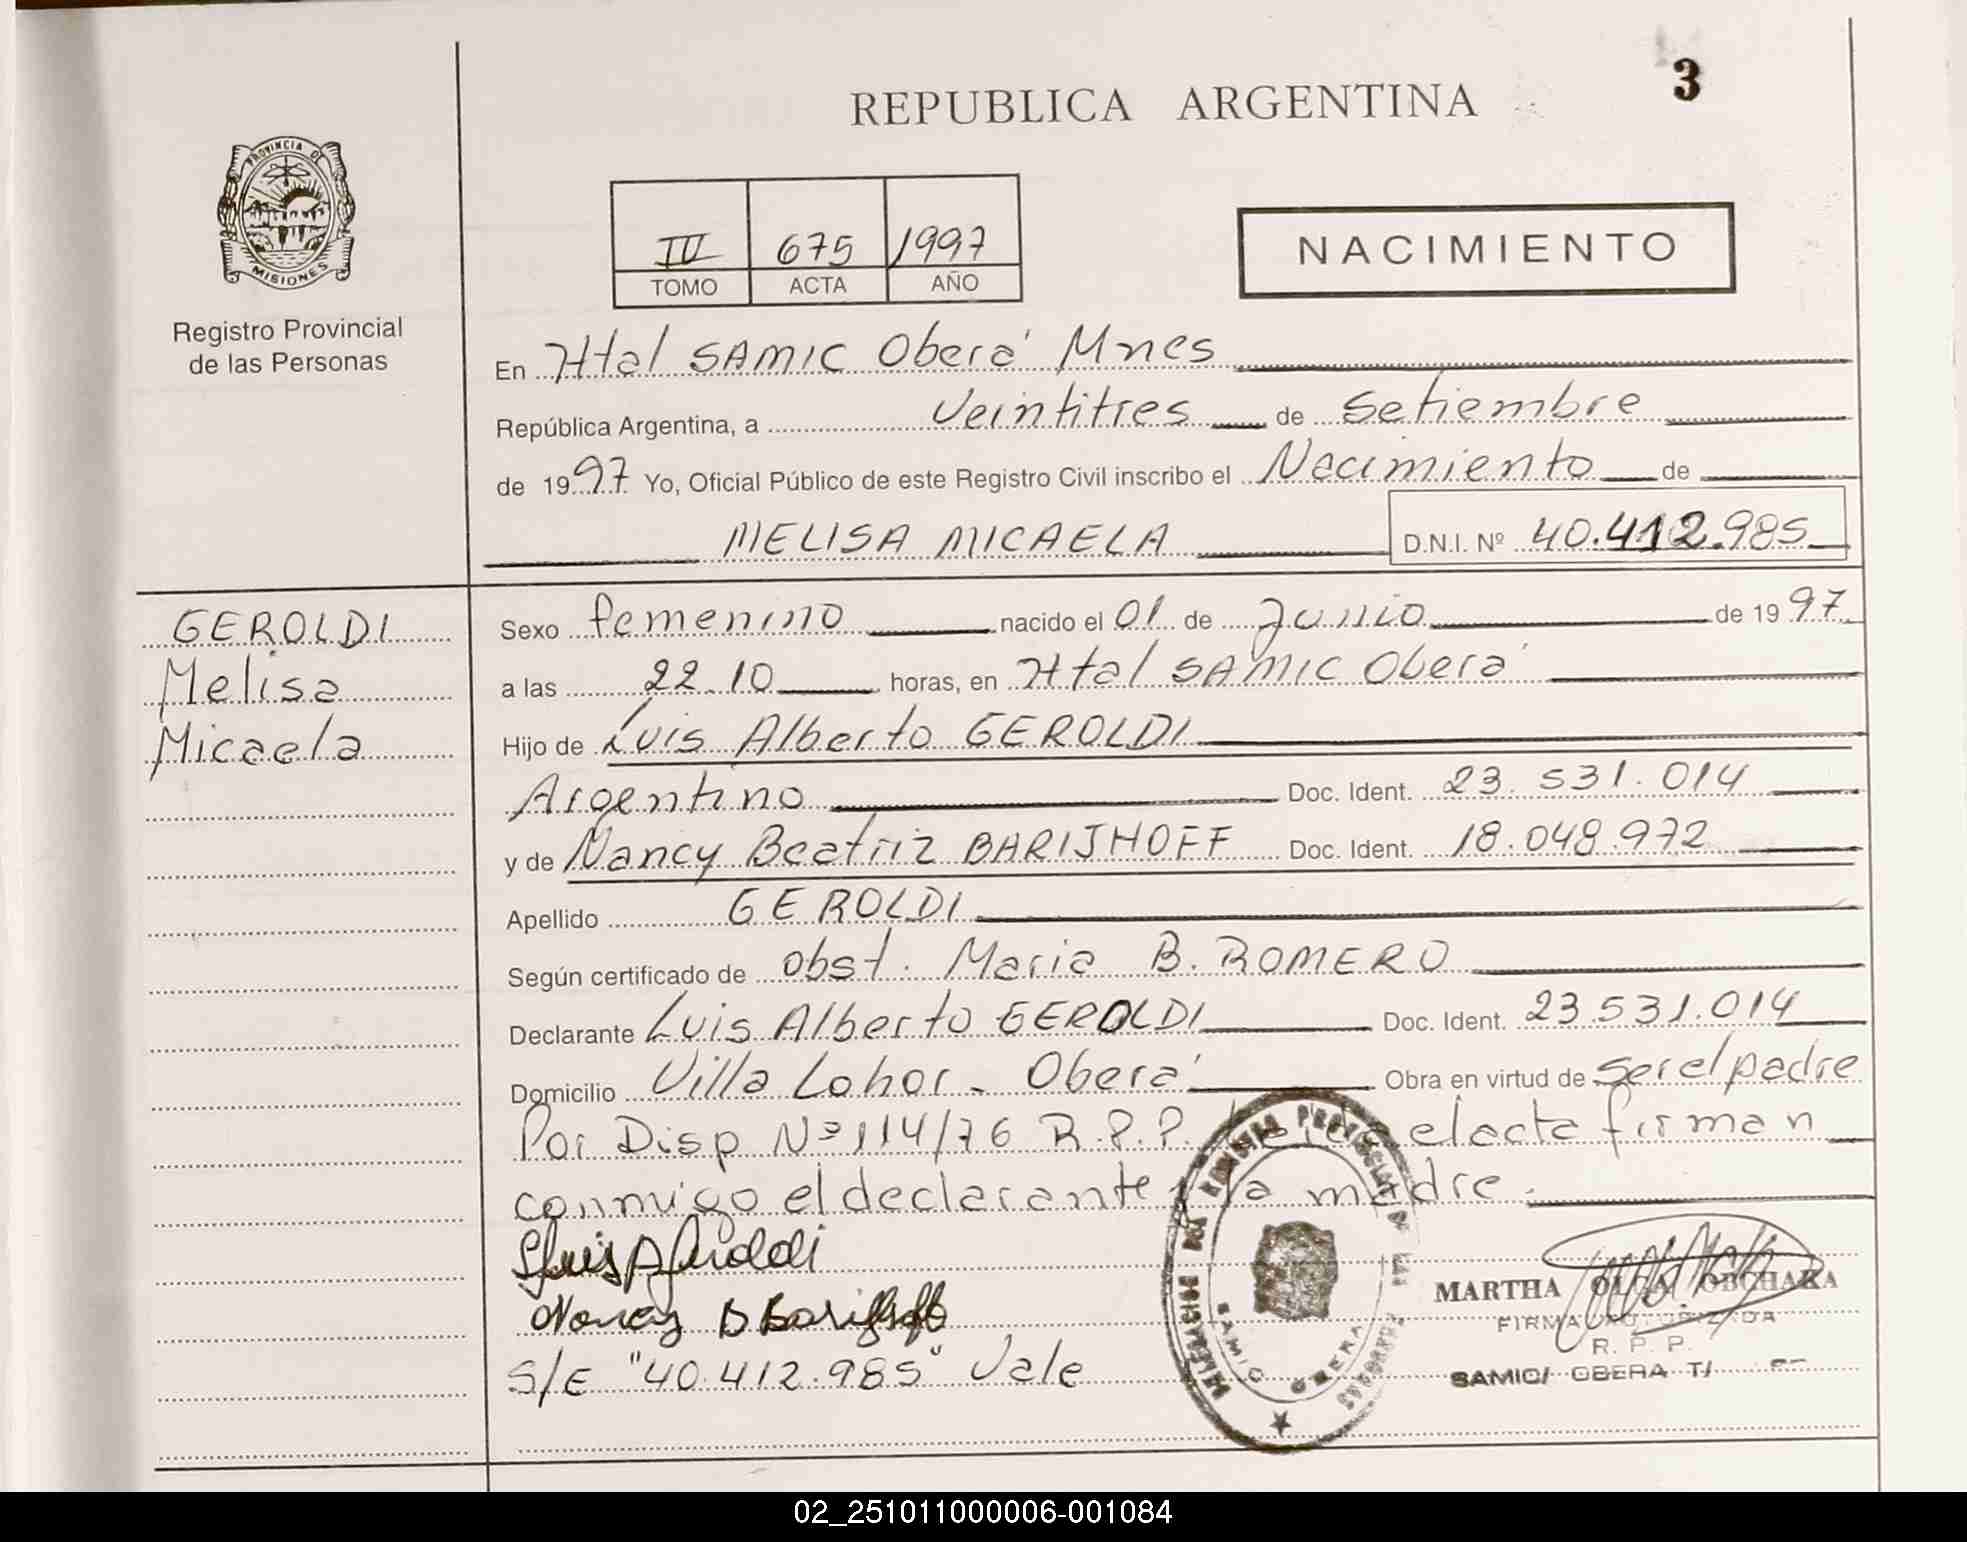 3
REPUBLICA ARGENTINA
PROVINCIA DE
MISIONES
Registro Provincial
de las Personas
IV 675 1997
TOMO ACTA AÑO
NACIMIENTO
En Htal SAMIC Oberá Mnes
República Argentina, a Veintitres de Setiembre
de 1997 Yo, Oficial Público de este Registro Civil inscribo el Nacimiento de
MELISA MICAELA D.N.I. Nº 40.412.985
GEROLDI
Melisa
Micaela
Sexo femenino nacido el 01 de Junio de 1997
a las 22.10 horas, en Htal SAMIC Oberá
Hijo de Luis Alberto GEROLDI
Argentino Doc. Ident. 23.531.014
y de Nancy Beatriz BARIJHOFF Doc. Ident. 18.048.972
Apellido GEROLDI
Según certificado de obst. Maria B. ROMERO
Declarante Luis Alberto GEROLDI Doc. Ident. 23.531.014
Domicilio Villa Lohor - Oberá Obra en virtud de ser el padre
Por Disp Nº 114/76 R.P.P. el acta firman
conmigo el declarante y la madre.
Luis A Geroldi
Nancy B Barijhoff
S/E "40.412.985" Vale
SAMIC OBERA
MARTHA OLGA OBCHAKA
FIRMA AUTORIZADA
R. P. P.
SAMIC/ OBERA T/
02_251011000006-001084